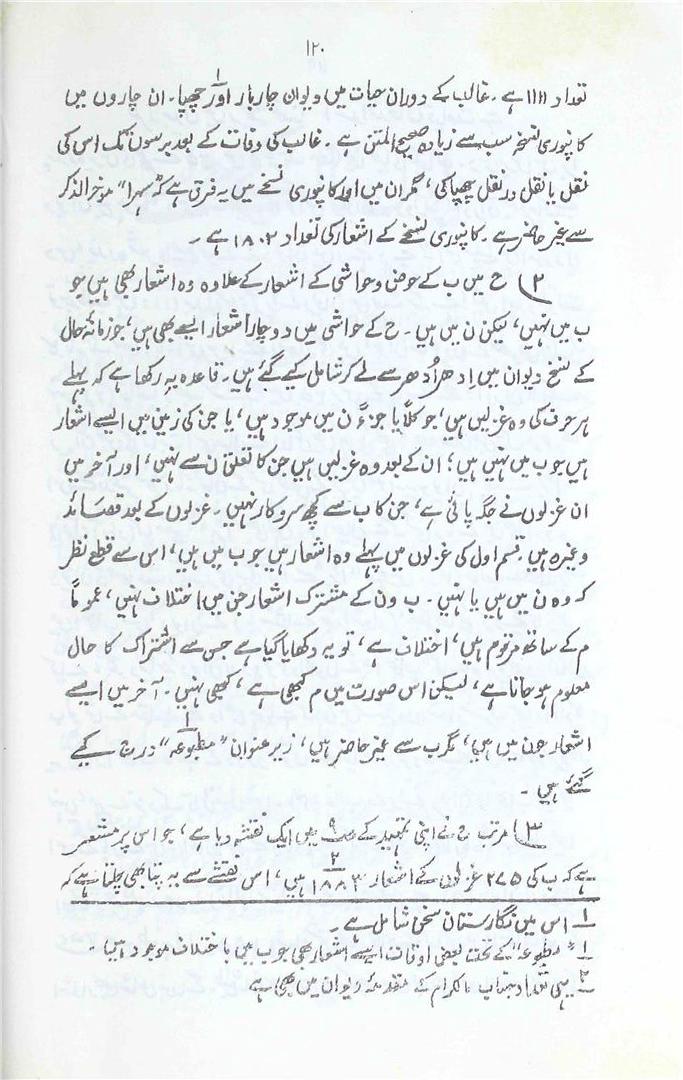 ۱۲۰
تعداد ۱۱۱۱ ہے۔ غالب کے دوران حیات میں دیوان چار بار اور۱ چھپا۔ ان چاروں میں
کانپوری نسخہ سب سے زیادہ صحیح المتن ہے۔ غالب کی وفات کے بعد برسوں تک اس کی
نقل یا نقل در نقل چھپا کی، مگر ن میں اور کانپوری نسخے میں یہ فرق ہے کہ "سہرا" موخر الذکر
سے غیر حاضر ہے۔ کانپوری نسخے کے اشعار کی تعداد ۱۸۰۲ ہے۔
۲) ح میں ب کے حوض و حواشی کے اشعار کے علاوہ وہ اشعار بھی ہیں جو
ب میں نہیں، لیکن ن میں ہیں۔ ح کے حواشی میں دوچار اشعار ایسے بھی ہیں، جو زمانۂ حال
کے نسخ دیوان میں اِدھر اُدھر سے لے کر شامل کیے گئے ہیں۔ قاعدہ یہ رکھا ہے کہ پہلے
ہر حرف کی وہ غزلیں ہیں، جو کلاً یا جزءً ن میں موجود ہیں، یا جن کی زمین میں ایسے اشعار
ہیں جو ب میں نہیں ہیں؛ ان کے بعد وہ غزلیں ہیں جن کا تعلق ن سے نہیں، اور آخر میں
ان غزلوں نے جگہ پائی ہے، جن کا ب سے کچھ سروکار نہیں۔ غزلوں کے بعد قصائد
وغیرہ ہیں۔ قسم اول کی غزلوں میں پہلے وہ اشعار ہیں جو ب میں ہیں، اس سے قطع نظر
کہ وہ ن میں ہیں یا نہیں۔ ب و ن کے مشترک اشعار جن میں اختلاف نہیں، عموماً
م کے ساتھ مرقوم ہیں، اختلاف ہے، تو یہ دکھایا گیا ہے جس سے اشتراک کا حال
معلوم ہو جاتا ہے، لیکن اس صورت میں م کبھی ہے، کبھی نہیں۔ آخر میں ایسے
اشعار جو ن میں ہیں، مگر ب سے غیر حاضر ہیں، زیر عنوان "مطبوعہ"۱ درج کیے
گئے ہیں۔
۳) مرتب ح نے اپنی تمہید کے ص۹ میں ایک نقشہ دیا ہے، جو اس پر مشعر
ہے کہ ب کی ۲۷۵ غزلوں کے اشعار ۱۸۸۳۲ ہیں، اس نقشے سے یہ پتا بھی چلتا ہے کہ
۱ اس میں نگارستان سخن شامل ہے۔
۱ "مطبوعہ" کے تحت بعض اوقات ایسے اشعار بھی جو ب میں با ختلاف موجود ہیں۔
۲ یہی تعداد جناب اکرام کے مقدمۂ دیوان میں بھی ہے